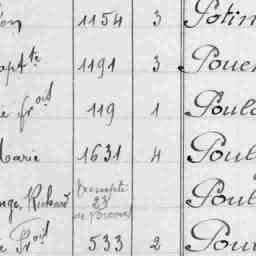 on 1154 3 Potin
apt.te 1191 3 Poue
ie fr.ois 119 1 Poul
Marie 1631 4 Poul
nge, Richard Exempté 23 de Poul
e Fr.ois 533 2 Pou